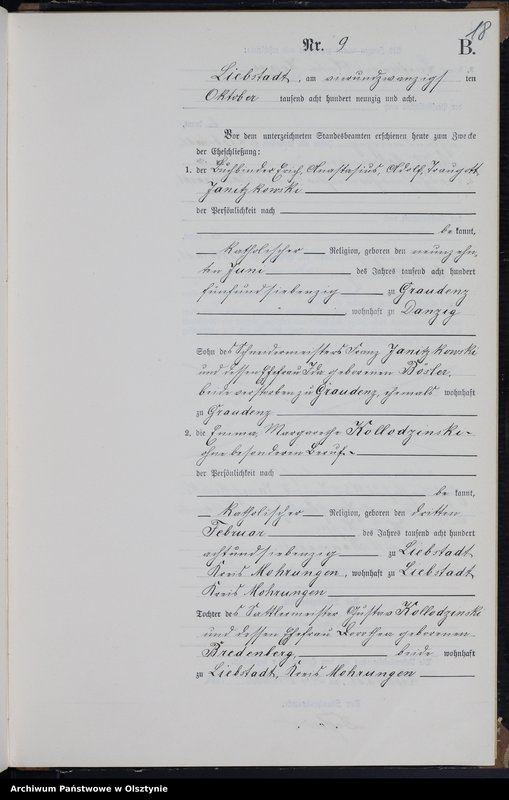 18
Nr. 9
B.
Liebstadt, am vierundzwanzigsten
Oktober tausend acht hundert neunzig und acht.
Vor dem unterzeichneten Standesbeamten erschienen heute zum Zwecke
der Eheschließung:
1. der Buchbinder Erich, Anastasius, Adolf, Traugott
Janitzkowski
der Persönlichkeit nach
be kannt,
katholischer Religion, geboren den neunzehn-
ten Juni des Jahres tausend acht hundert
fünfundsiebenzig zu Graudenz
, wohnhaft zu Danzig
Sohn des Schneidermeisters Franz Janitzkowski
und dessen Ehefrau Ida geborenen Bösler,
beide verstorben zu Graudenz, ehemals wohnhaft
zu Graudenz
2. die Emma, Margarethe Kollodzinski-
ohne besonderen Beruf-
der Persönlichkeit nach
be kannt,
katholischer Religion, geboren den dritten
Februar des Jahres tausend acht hundert
achtundsiebenzig zu Liebstadt
Kreis Mohrungen, wohnhaft zu Liebstadt
Kreis Mohrungen
Tochter des Sattlermeister Gustav Kollodzinski
und dessen Ehefrau Dorothea geborenen
Bredenberg, beide wohnhaft
zu Liebstadt, Kreis Mohrungen
Archiwum Państwowe w Olsztynie